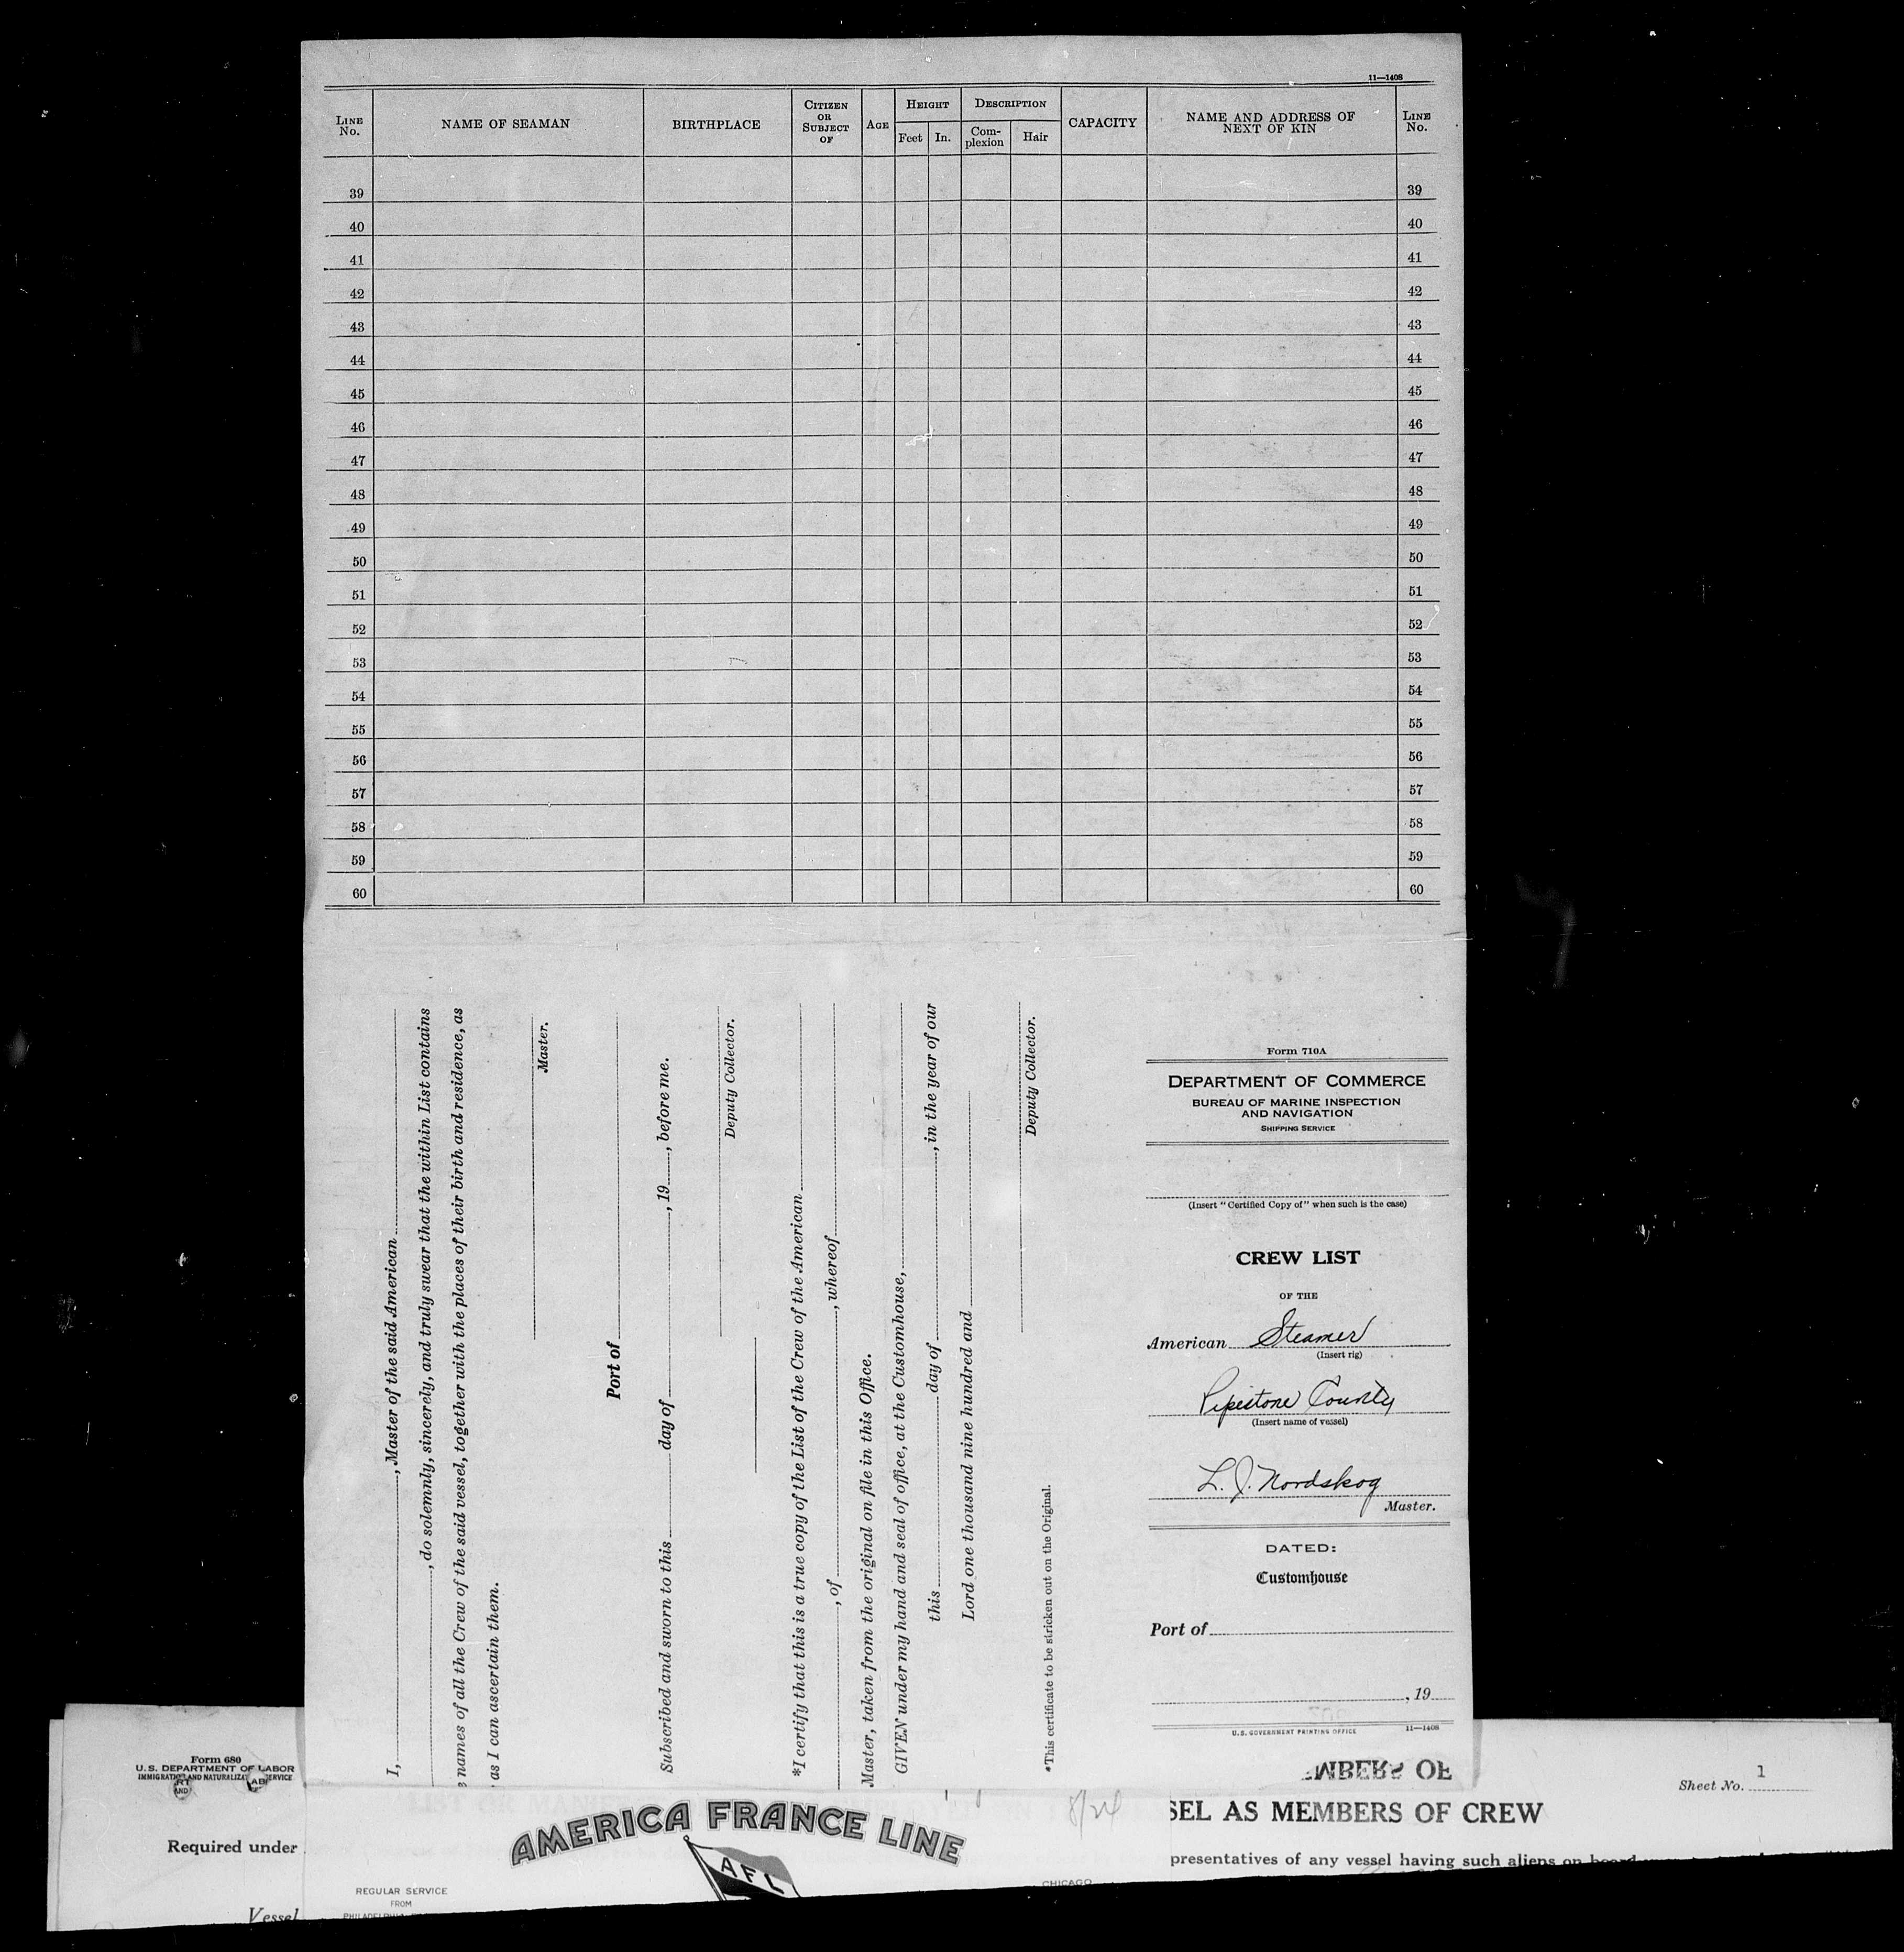 11—1408
LINE No. NAME OF SEAMAN BIRTHPLACE CITIZEN OR SUBJECT OF AGE HEIGHT Feet In. DESCRIPTION Com-plexion Hair CAPACITY NAME AND ADDRESS OF NEXT OF KIN LINE No.
39 39
40 40
41 41
42 42
43 43
44 44
45 45
46 46
47 47
48 48
49 49
50 50
51 51
52 52
53 53
54 54
55 55
56 56
57 57
58 58
59 59
60 60
I, , Master of the said American
, do solemnly, sincerely, and truly swear that the within List contains
names of all the Crew of the said vessel, together with the places of their birth and residence, as
as I can ascertain them.
Master.
Port of
Subscribed and sworn to this day of , 19 , before me.
Deputy Collector.
*I certify that this is a true copy of the List of the Crew of the American
, of , whereof
Master, taken from the original on file in this Office.
GIVEN under my hand and seal of office, at the Customhouse,
this day of , in the year of our
Lord one thousand nine hundred and
Deputy Collector.
*This certificate to be stricken out on the Original.
Form 710A
DEPARTMENT OF COMMERCE
BUREAU OF MARINE INSPECTION
AND NAVIGATION
SHIPPING SERVICE
(Insert "Certified Copy of" when such is the case)
CREW LIST
OF THE
American Steamer
(Insert rig)
Pipestone County
(Insert name of vessel)
L. J. Nordskog
Master.
DATED:
Customhouse
Port of
, 19
U.S. GOVERNMENT PRINTING OFFICE 11—1408
Form 680
U. S. DEPARTMENT OF LABOR
IMMIGRATION AND NATURALIZATION SERVICE
Sheet No. 1
MBERS OF
8/24
SEL AS MEMBERS OF CREW
AMERICA FRANCE LINE
AFL
Required under
presentatives of any vessel having such aliens on board
REGULAR SERVICE
FROM
PHILADELPHIA
CHICAGO
Vessel